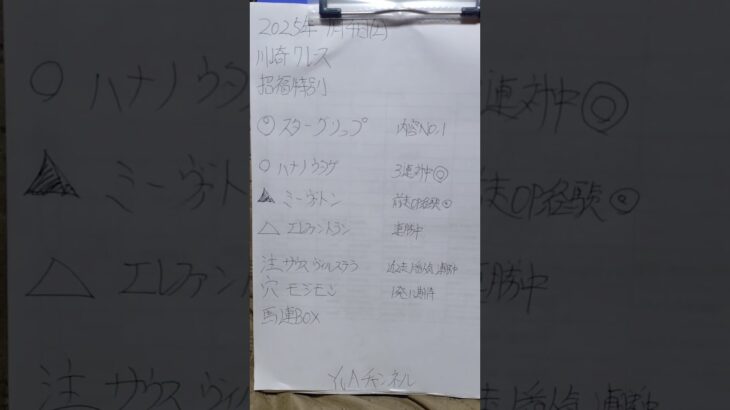 2025年1月4日(土)
川崎7レース
招福特別
◎スターグリップ 内容NO.1
○ハナノウタゲ 3連対中◎
▲ミーヴァトン 前走OP経験◎
△エレファントラン 連勝中
注サウスヴィルステラ 近走1番人気連対中
穴モジモン 1発に期待
馬連BOX
YAチャンネル